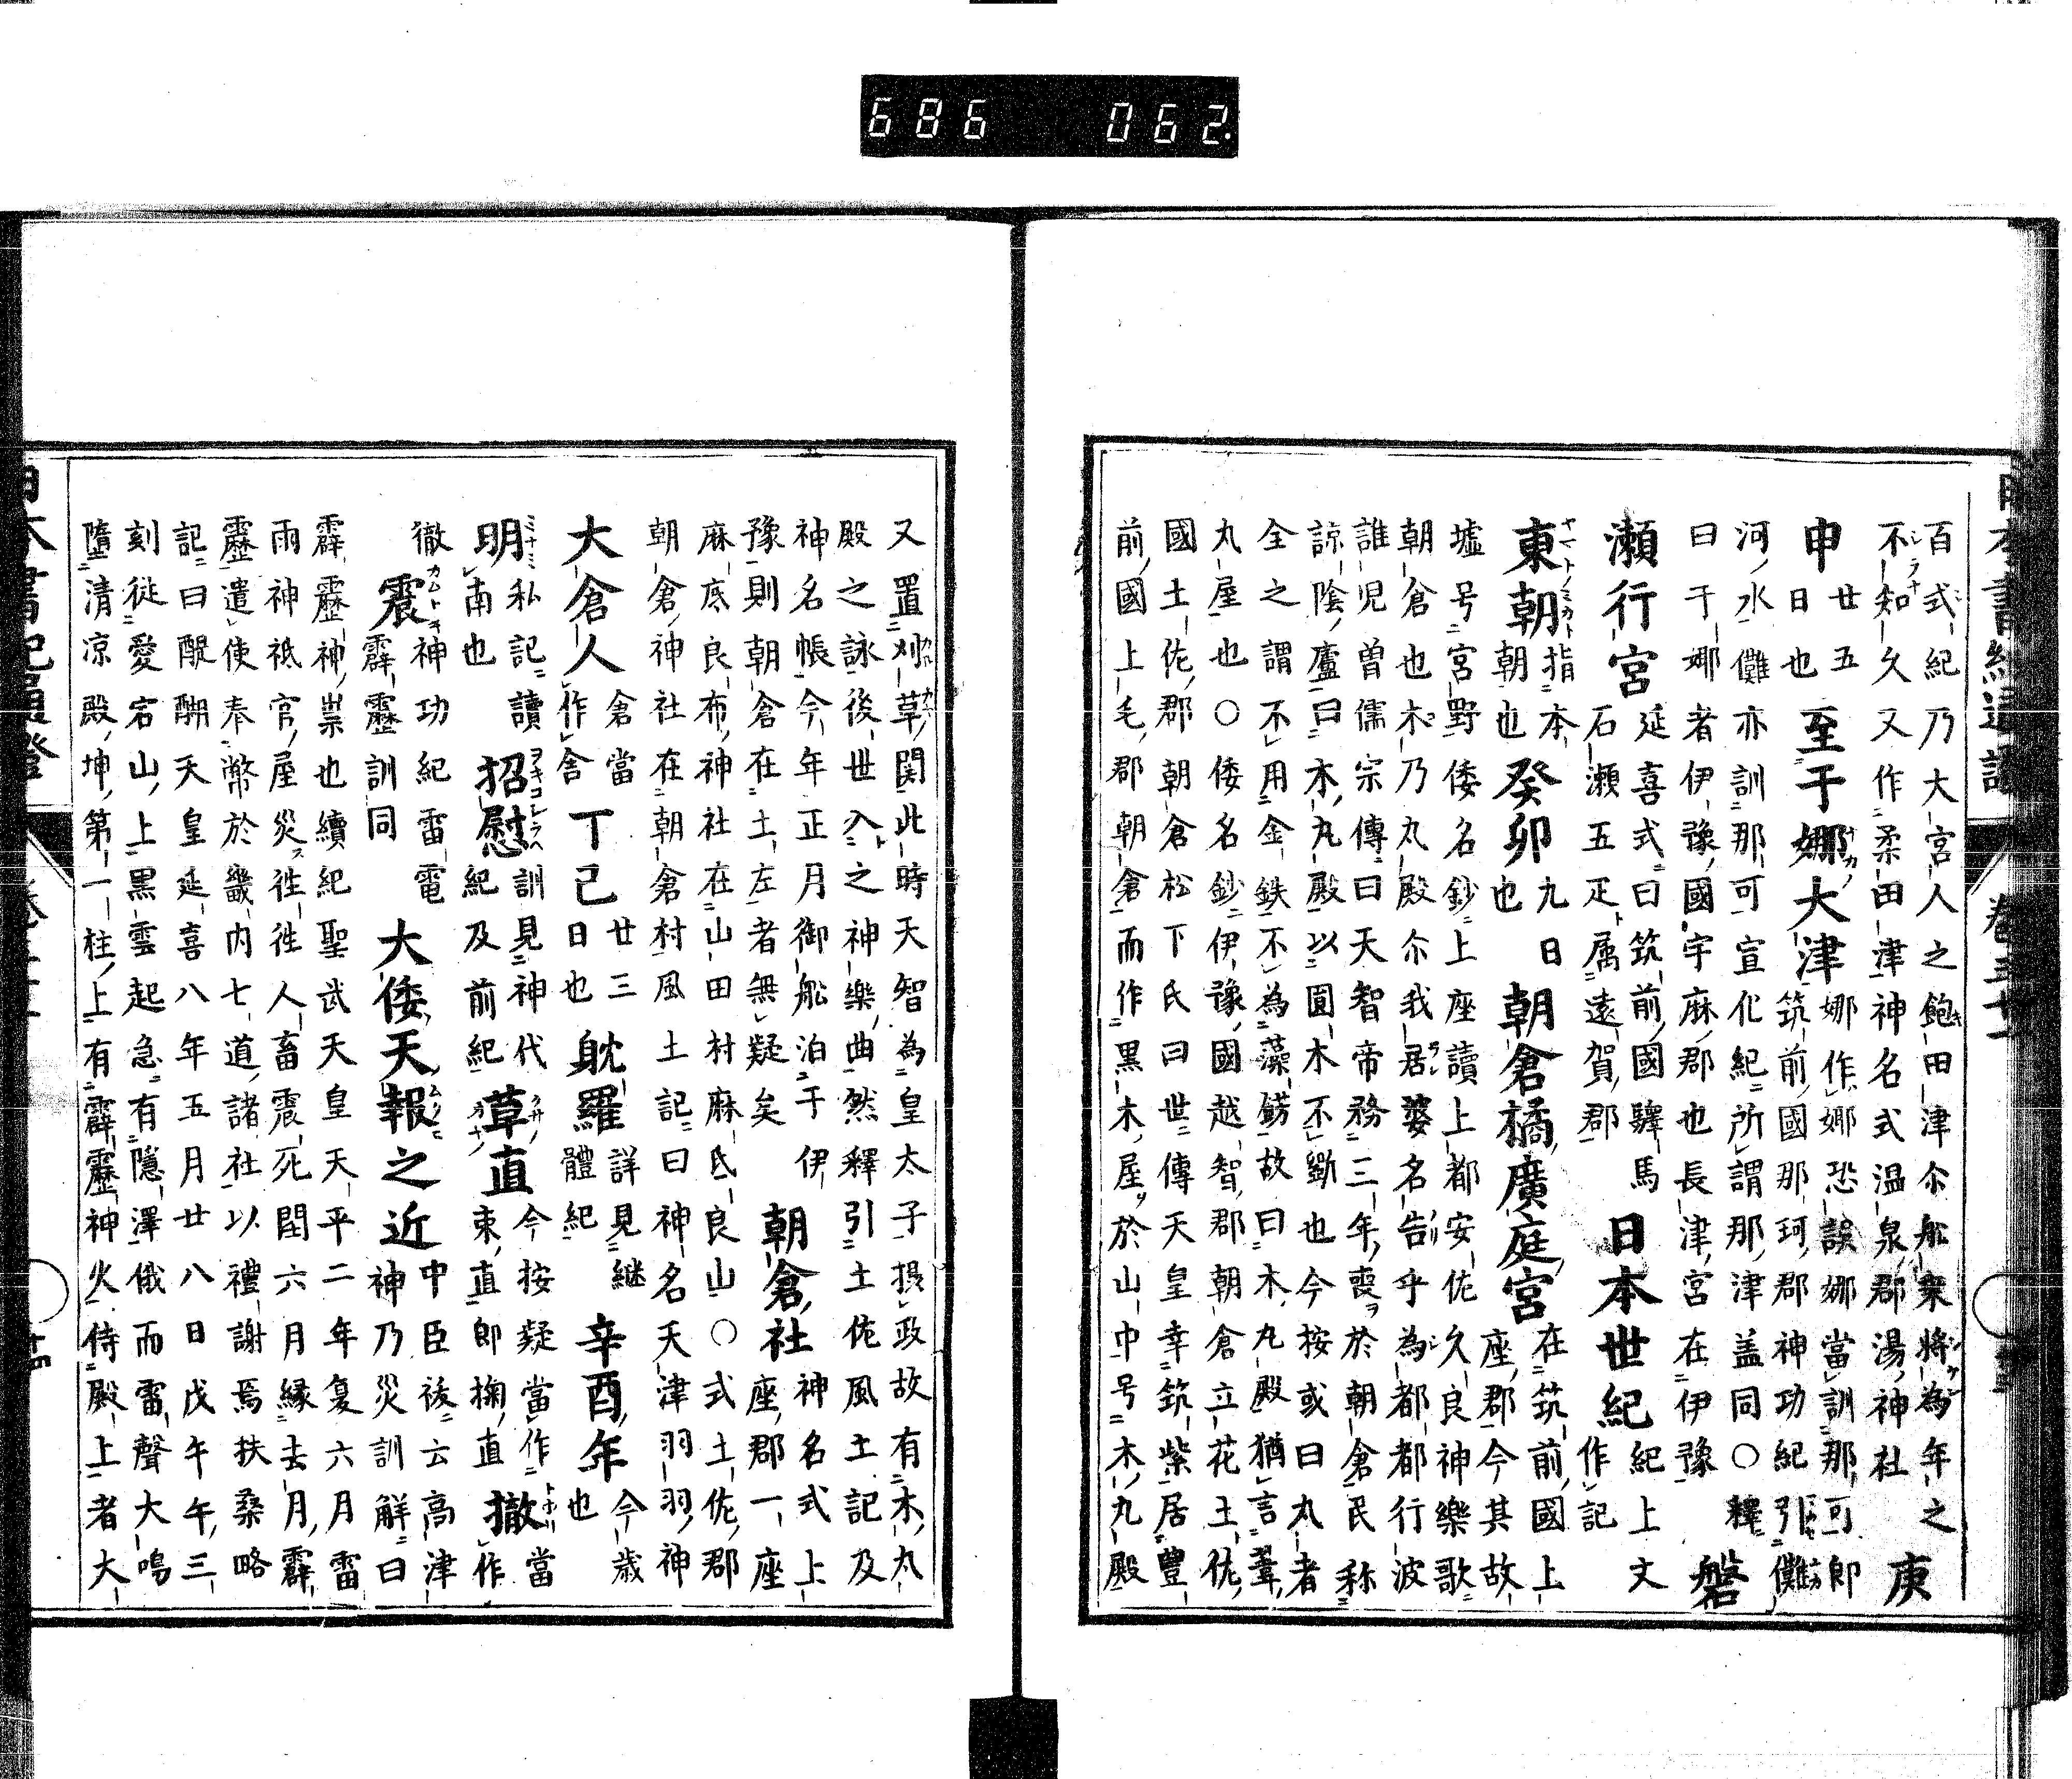 686 062.
百式紀乃大宮人之飽田津尒船乗將為年之
不知久又作柔田津神名式温泉郡湯神社 庚
申 廿五日也 至于娜大津 娜作娜恐誤娜當訓那可郎
筑前國那珂郡神功紀引儺
河水儺亦訓那可宣化紀所謂那津盖同○釋
曰于娜者伊豫國宇麻郡也長津宮在伊豫 磐
瀬行宮 延喜式曰筑前國驛馬
石瀬五疋属遠賀郡 日本世紀 紀上文
作記
東朝 指本
朝也 癸卯 九日
也 朝倉橘廣庭宮 在筑前國上
座郡今其故
墟号宮野倭名鈔上座讀上都安佐久良神樂歌
朝倉也木乃丸殿尒我居婆名告乎為都都行波
誰児曽儒宗傳曰天智帝務三年喪於朝倉民称
諒陰廬曰木丸殿以圓木不斵也今按或曰丸者
全之謂不用金鉄不為藻錺故曰木丸殿猶言葦
丸屋也○倭名鈔伊豫國越智郡朝倉立花土佐
國土佐郡朝倉松下氏曰世傳天皇幸筑紫居豊
前國上毛郡朝倉而作黒木屋於山中号木丸殿
又置刈草関此時天智為皇太子摂政故有木丸
殿之詠後世入之神樂曲然釋引土佐風土記及
神名帳今年正月御船泊于伊 朝倉社 神名式上
豫則朝倉在土左者無疑矣 座郡一座
麻底良布神社在山田村麻氐良山○式土佐郡
朝倉神社在朝倉村風土記曰神名天津羽羽神
大倉人 倉當
作舎 丁巳 廿三
日也 躭羅 詳見継
體紀 辛酉年 今歳
也
明 私記讀
南也 招慰 訓見神代
紀及前紀 草直 今按疑當作
束直郎掬直 撤 當
作
徹 震 神功紀雷電
霹靂訓同 大倭天報之近 中臣後云高津
神乃災訓解曰
霹靂神祟也續紀聖武天皇天平二年夏六月雷
雨神祇官屋災徃徃人畜震死閏六月縁去月霹
靂遣使奉幣於畿内七道諸社以禮謝焉扶桑略
記曰醍醐天皇延喜八年五月廿八日戊午午三
刻従愛宕山上黒雲起急有隠澤俄而雷聲大鳴
墮清凉殿坤第一柱上有霹靂神火侍殿上者大